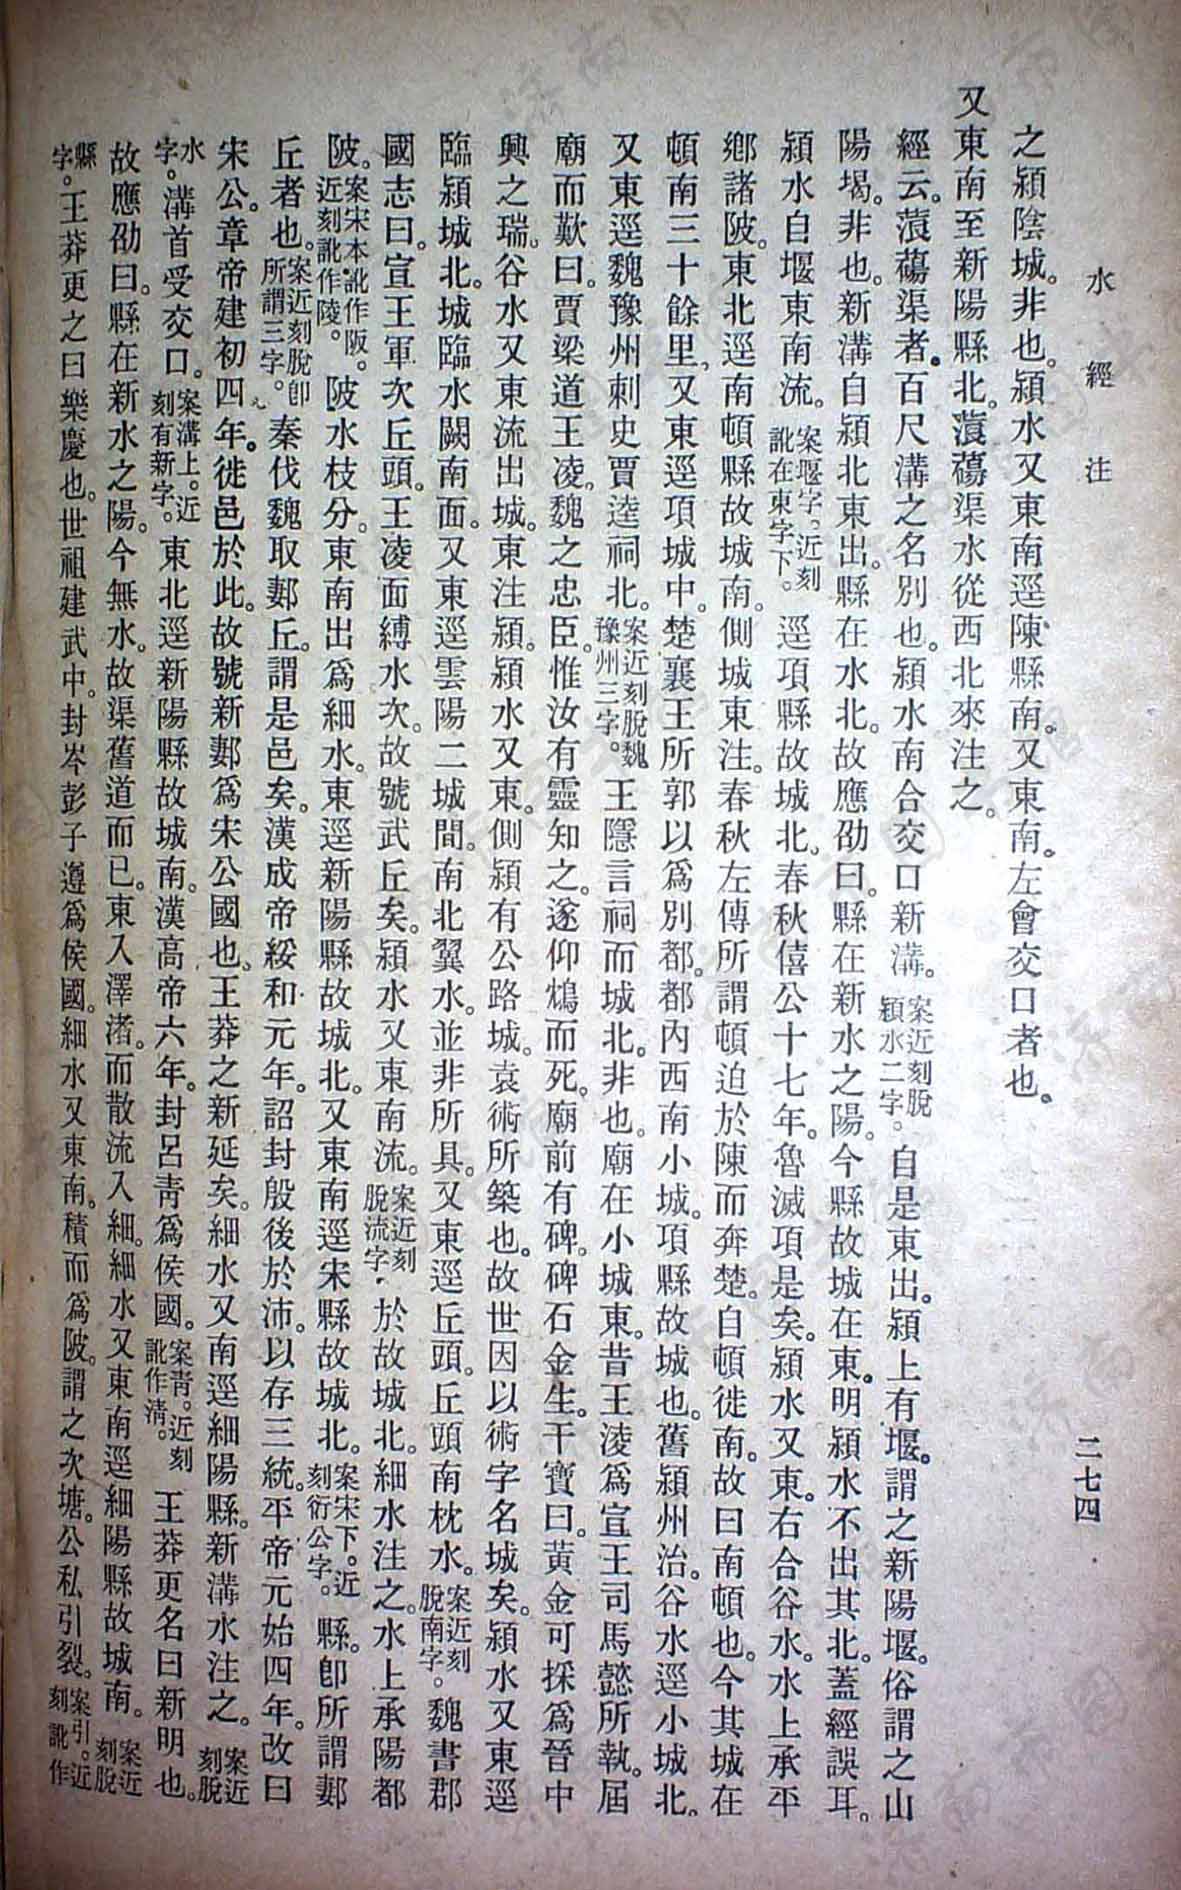 水經注
二七四
之潁陰城。非也。潁水又東南逕陳縣南。又東南。左會交口者也。
又東南至新陽縣北。蒗䕞渠水從西北來注之。
經云。蒗䕞渠者。百尺溝之名別也。潁水南合交口新溝。案近刻脫潁水二字。自是東出。潁上有堰。謂之新陽堰。俗謂之山
陽堨。非也。新溝自潁北東出。縣在水北。故應劭曰。縣在新水之陽。今縣故城在東。明潁水不出其北。蓋經誤耳。
潁水自堰東南流。案堰字。近刻訛在東字下。逕項縣故城北。春秋僖公十七年。魯滅項是矣。潁水又東。右合谷水。水上承平
鄉諸陂。東北逕南頓縣故城南。側城東注。春秋左傳所謂頓迫於陳而奔楚。自頓徙南。故曰南頓也。今其城在
頓南三十餘里。又東逕項城中。楚襄王所郭以爲別都。都內西南小城。項縣故城也。舊潁州治。谷水逕小城北。
又東逕魏豫州刺史賈逵祠北。案近刻脫魏豫州三字。王隱言祠而城北。非也。廟在小城東。昔王淩爲宣王司馬懿所執。屆
廟而歎曰。賈梁道王凌。魏之忠臣。惟汝有靈知之。遂仰鴆而死。廟前有碑。碑石金生。干寶曰。黃金可採爲晉中
興之瑞。谷水又東流出城。東注潁。潁水又東。側潁有公路城。袁術所築也。故世因以術字名城矣。潁水又東逕
臨潁城北。城臨水闕南面。又東逕雲陽二城間。南北翼水。並非所具。又東逕丘頭。丘頭南枕水。案近刻脫南字。魏書郡
國志曰。宣王軍次丘頭。王凌面縛水次。故號武丘矣。潁水又東南流。案近刻脫流字。於故城北。細水注之。水上承陽都
陂。案宋本訛作阪。近刻訛作陵。陂水枝分。東南出爲細水。東逕新陽縣故城北。又東南逕宋縣故城北。案宋下。近刻衍公字。縣。卽所謂郪
丘者也。案近刻脫卽所謂三字。秦伐魏取郪丘。謂是邑矣。漢成帝綏和元年。詔封殷後於沛。以存三統。平帝元始四年。改曰
宋公。章帝建初四年。徙邑於此。故號新郪爲宋公國也。王莽之新延矣。細水又南逕細陽縣。新溝水注之。案近刻脫
水字。溝首受交口。案溝上。近刻有新字。東北逕新陽縣故城南。漢高帝六年。封呂靑爲侯國。案靑。近刻訛作清。王莽更名曰新明也。
故應劭曰。縣在新水之陽。今無水。故渠舊道而已。東入澤渚。而散流入細。細水又東南逕細陽縣故城南。案近刻脫
縣字。王莽更之曰樂慶也。世祖建武中。封岑彭子遵爲侯國。細水又東南。積而爲陂。謂之次塘。公私引裂。案引。近刻訛作